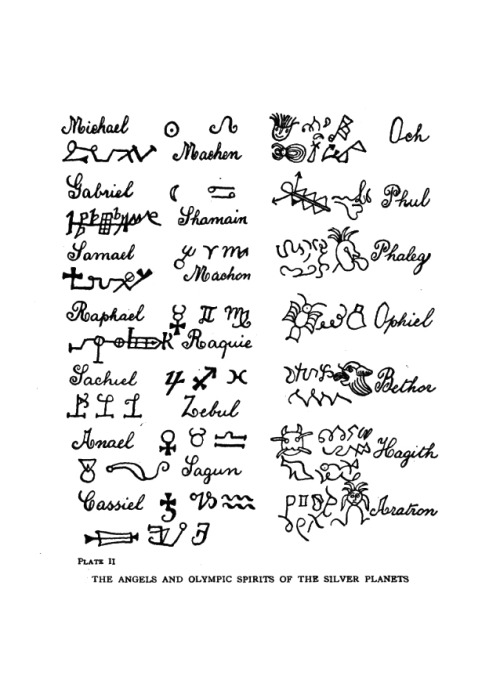 Michael ☉ ♌ Och
Machen
Gabriel ☾ ♋ Phul
Shamain
Samael ♈ ♏ Phaleg
Machon
Raphael ☿ ♊ ♍ Ophiel
Raquie
Sachiel ♃ ♐ ♓ Bethor
Zebul
Anael ♀ ♉ ♎ Hagith
Sagun
Cassiel ♄ ♑ ♒ Aratron
PLATE II
THE ANGELS AND OLYMPIC SPIRITS OF THE SILVER PLANETS